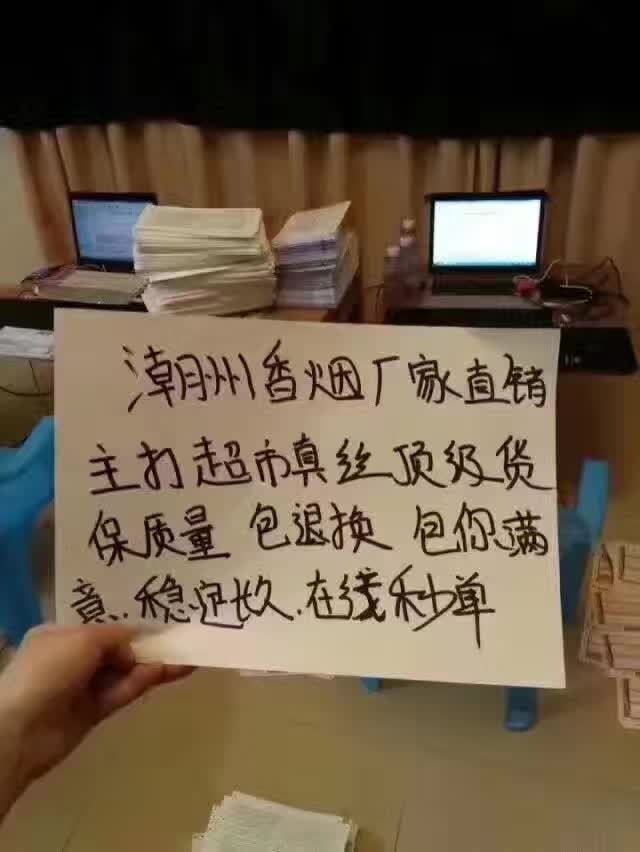 潮州香烟厂家直销
主打超市真丝顶级货
保质量 包退换 包你满
意..稳定长久.在线秒单